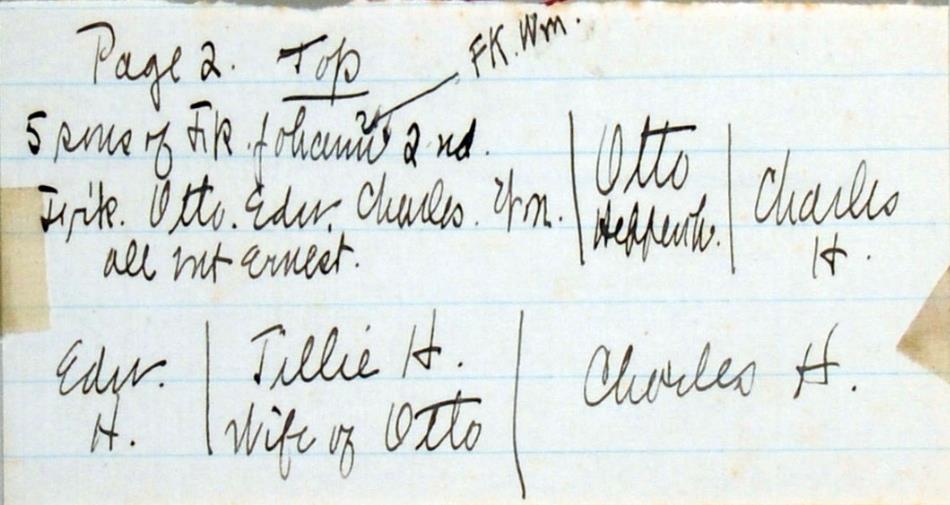 Page 2. Top
FK. Wm.
5 sons of Fk. Johann 2nd.
Otto. Edw. Charles. Wm.
all but Ernest.
Otto
Charles
H.
Edw.
H.
Tillie H.
Wife of Otto
Charles H.